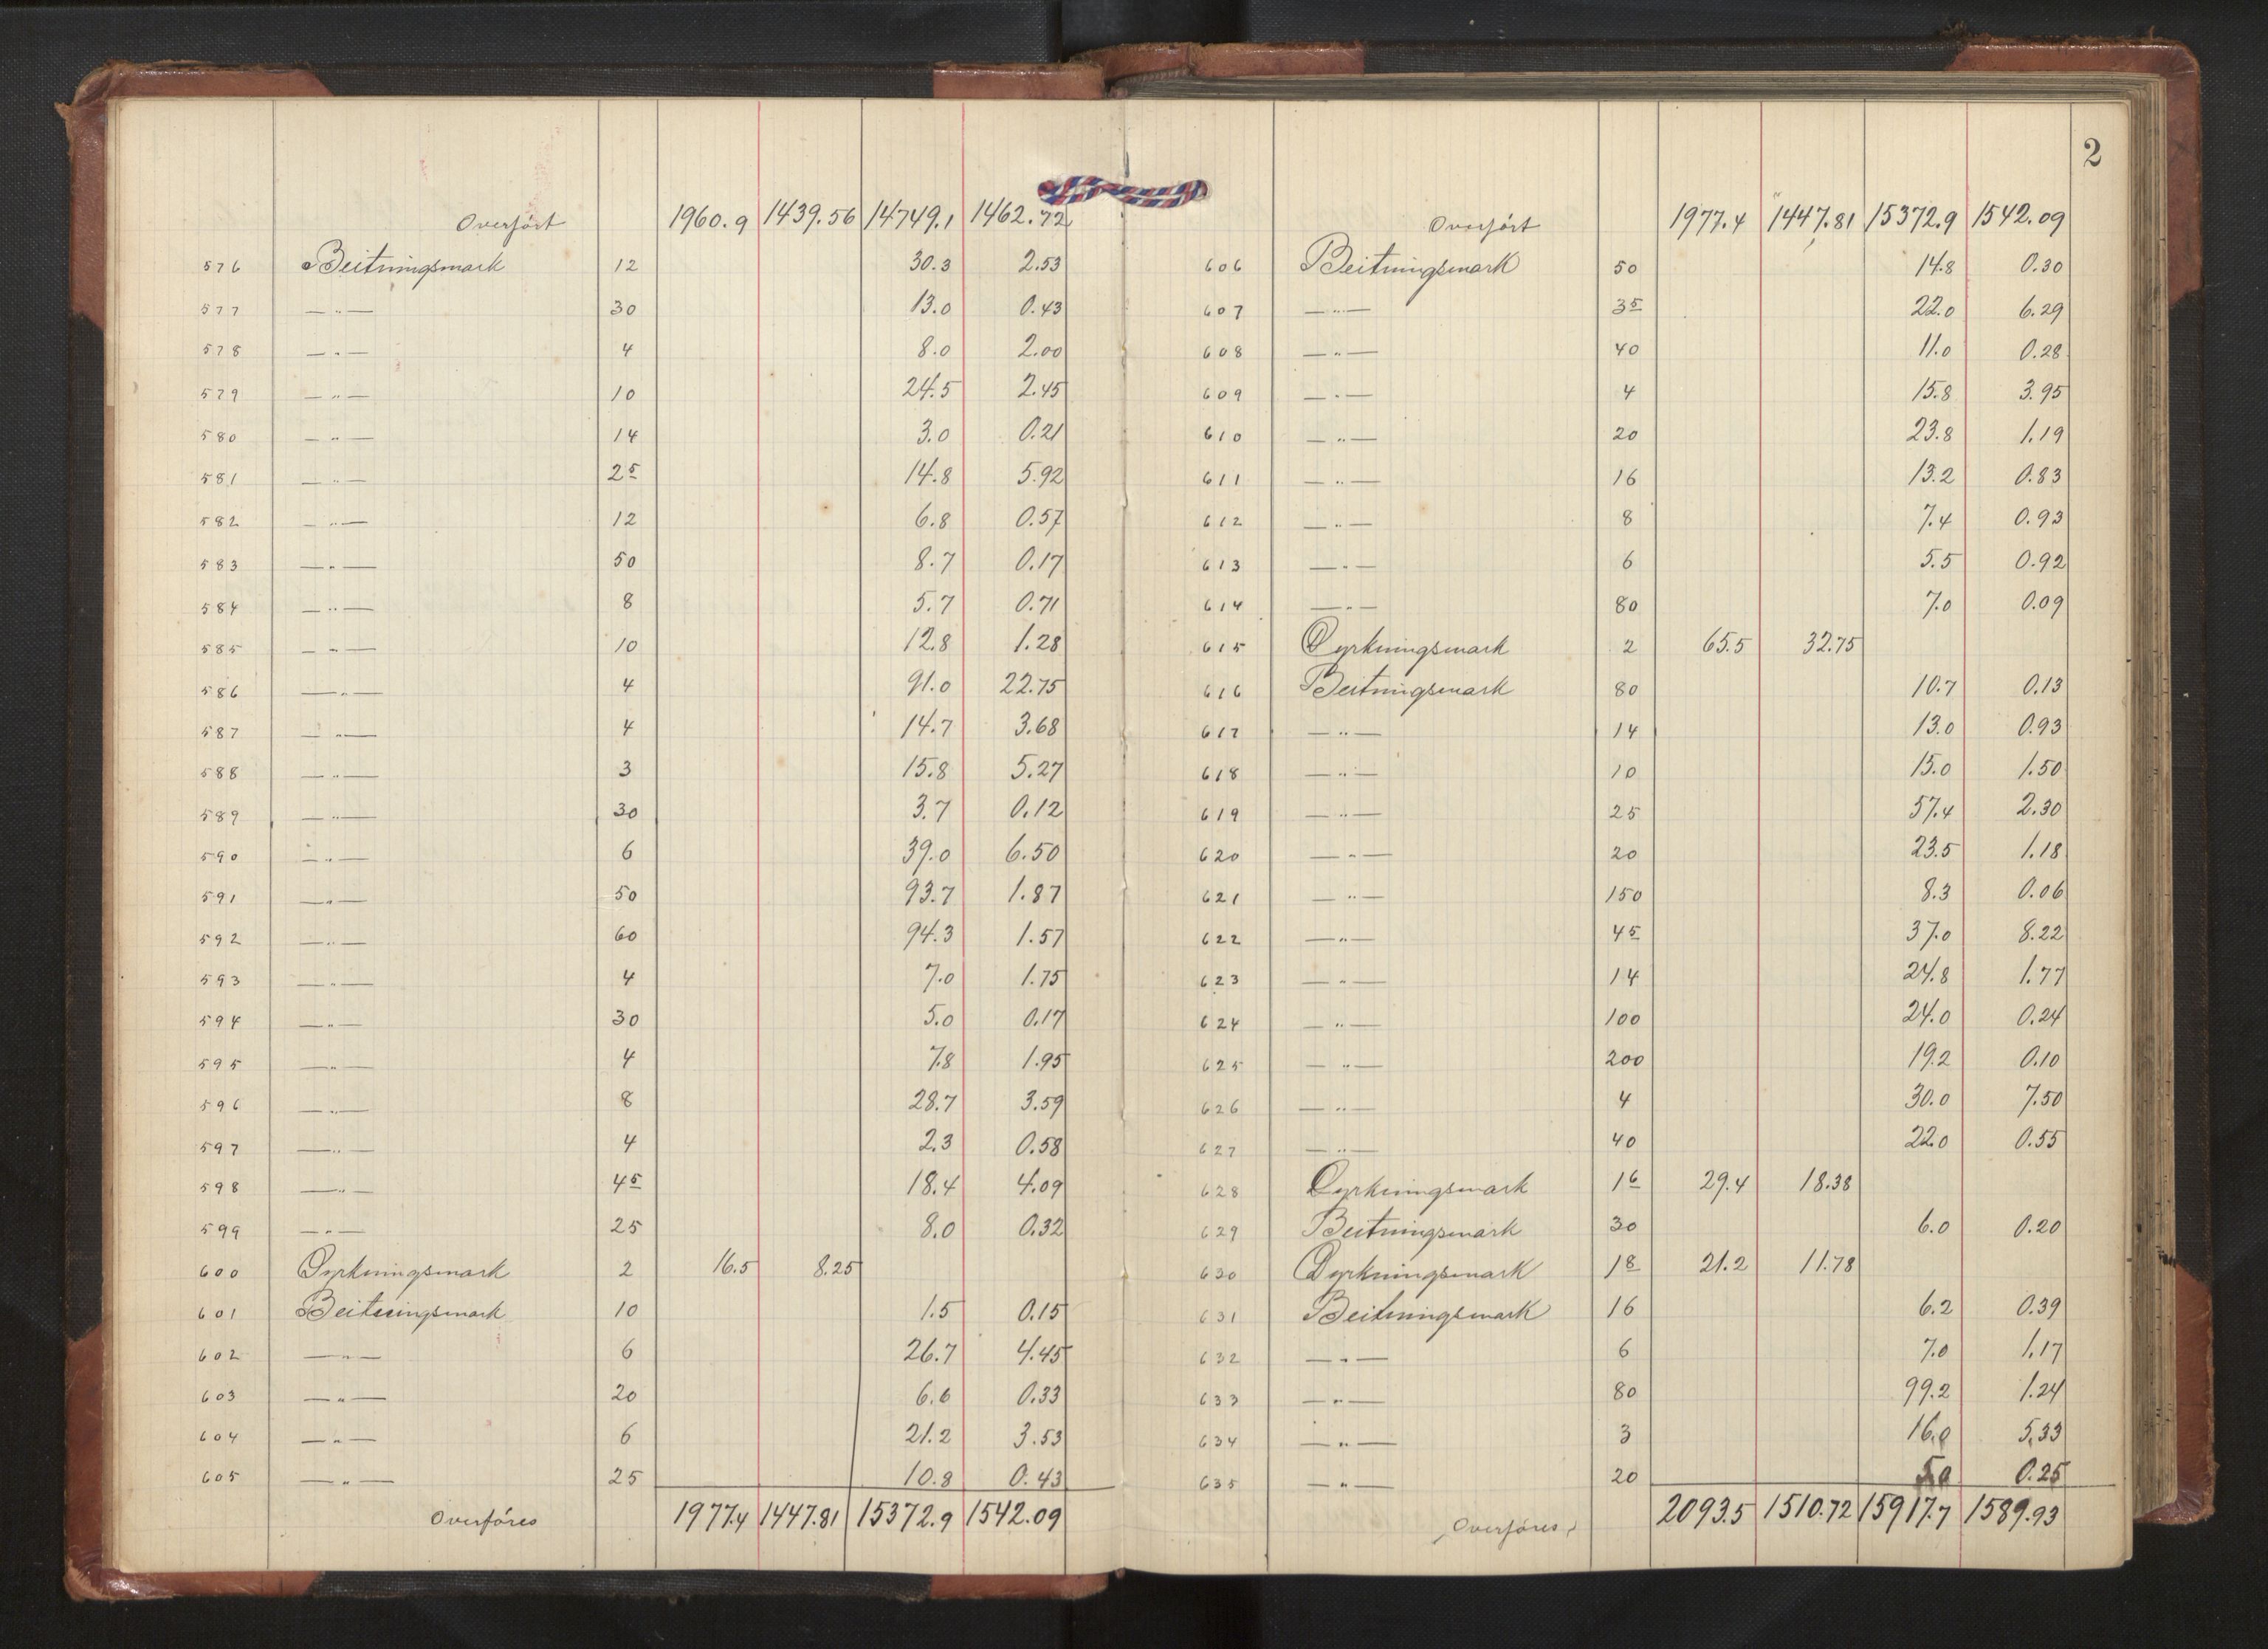 Overført 1960.9 1439.56 14749.1 1462.72
576 Beitningsmark 12 30.3 2.53
577 —"— 30 13.0 0.43
578 —"— 4 8.0 2.00
579 —"— 10 24.5 2.45
580 —"— 14 3.0 0.21
581 —"— 2⁵ 14.8 5.92
582 —"— 12 6.8 0.57
583 —"— 50 8.7 0.17
584 —"— 8 5.7 0.71
585 —"— 10 12.8 1.28
586 —"— 4 91.0 22.75
587 —"— 4 14.7 3.68
588 —"— 3 15.8 5.27
589 —"— 30 3.7 0.12
590 —"— 6 39.0 6.50
591 —"— 50 93.7 1.87
592 —"— 60 94.3 1.57
593 —"— 4 7.0 1.75
594 —"— 30 5.0 0.17
595 —"— 4 7.8 1.95
596 —"— 8 28.7 3.59
597 —"— 4 2.3 0.58
598 —"— 4⁵ 18.4 4.09
599 —"— 25 8.0 0.32
600 Dyrkningsmark 2 16.5 8.25
601 Beitningsmark 10 1.5 0.15
602 —"— 6 26.7 4.45
603 —"— 20 6.6 0.33
604 —"— 6 21.2 3.53
605 —"— 25 10.8 0.43
Overføres 1977.4 1447.81 15372.9 1542.09
2
Overført 1977.4 1447.81 15372.9 1542.09
606 Beitningsmark 50 14.8 0.30
607 —"— 3⁵ 22.0 6.29
608 —"— 40 11.0 0.28
609 —"— 4 15.8 3.95
610 —"— 20 23.8 1.19
611 —"— 16 13.2 0.83
612 —"— 8 7.4 0.93
613 —"— 6 5.5 0.92
614 —"— 80 7.0 0.09
615 Dyrkningsmark 2 65.5 32.75
616 Beitningsmark 80 10.7 0.13
617 —"— 14 13.0 0.93
618 —"— 10 15.0 1.50
619 —"— 25 57.4 2.30
620 —"— 20 23.5 1.18
621 —"— 150 8.3 0.06
622 —"— 4⁵ 37.0 8.22
623 —"— 14 24.8 1.77
624 —"— 100 24.0 0.24
625 —"— 200 19.2 0.10
626 —"— 4 30.0 7.50
627 —"— 40 22.0 0.55
628 Dyrkningsmark 1⁶ 29.4 18.38
629 Beitningsmark 30 6.0 0.20
630 Dyrkningsmark 1⁸ 21.2 11.78
631 Beitningsmark 16 6.2 0.39
632 —"— 6 7.0 1.17
633 —"— 80 99.2 1.24
634 —"— 3 16.0 5.33
635 —"— 20 5.0 0.25
Overføres 2093.5 1510.72 15917.7 1589.93